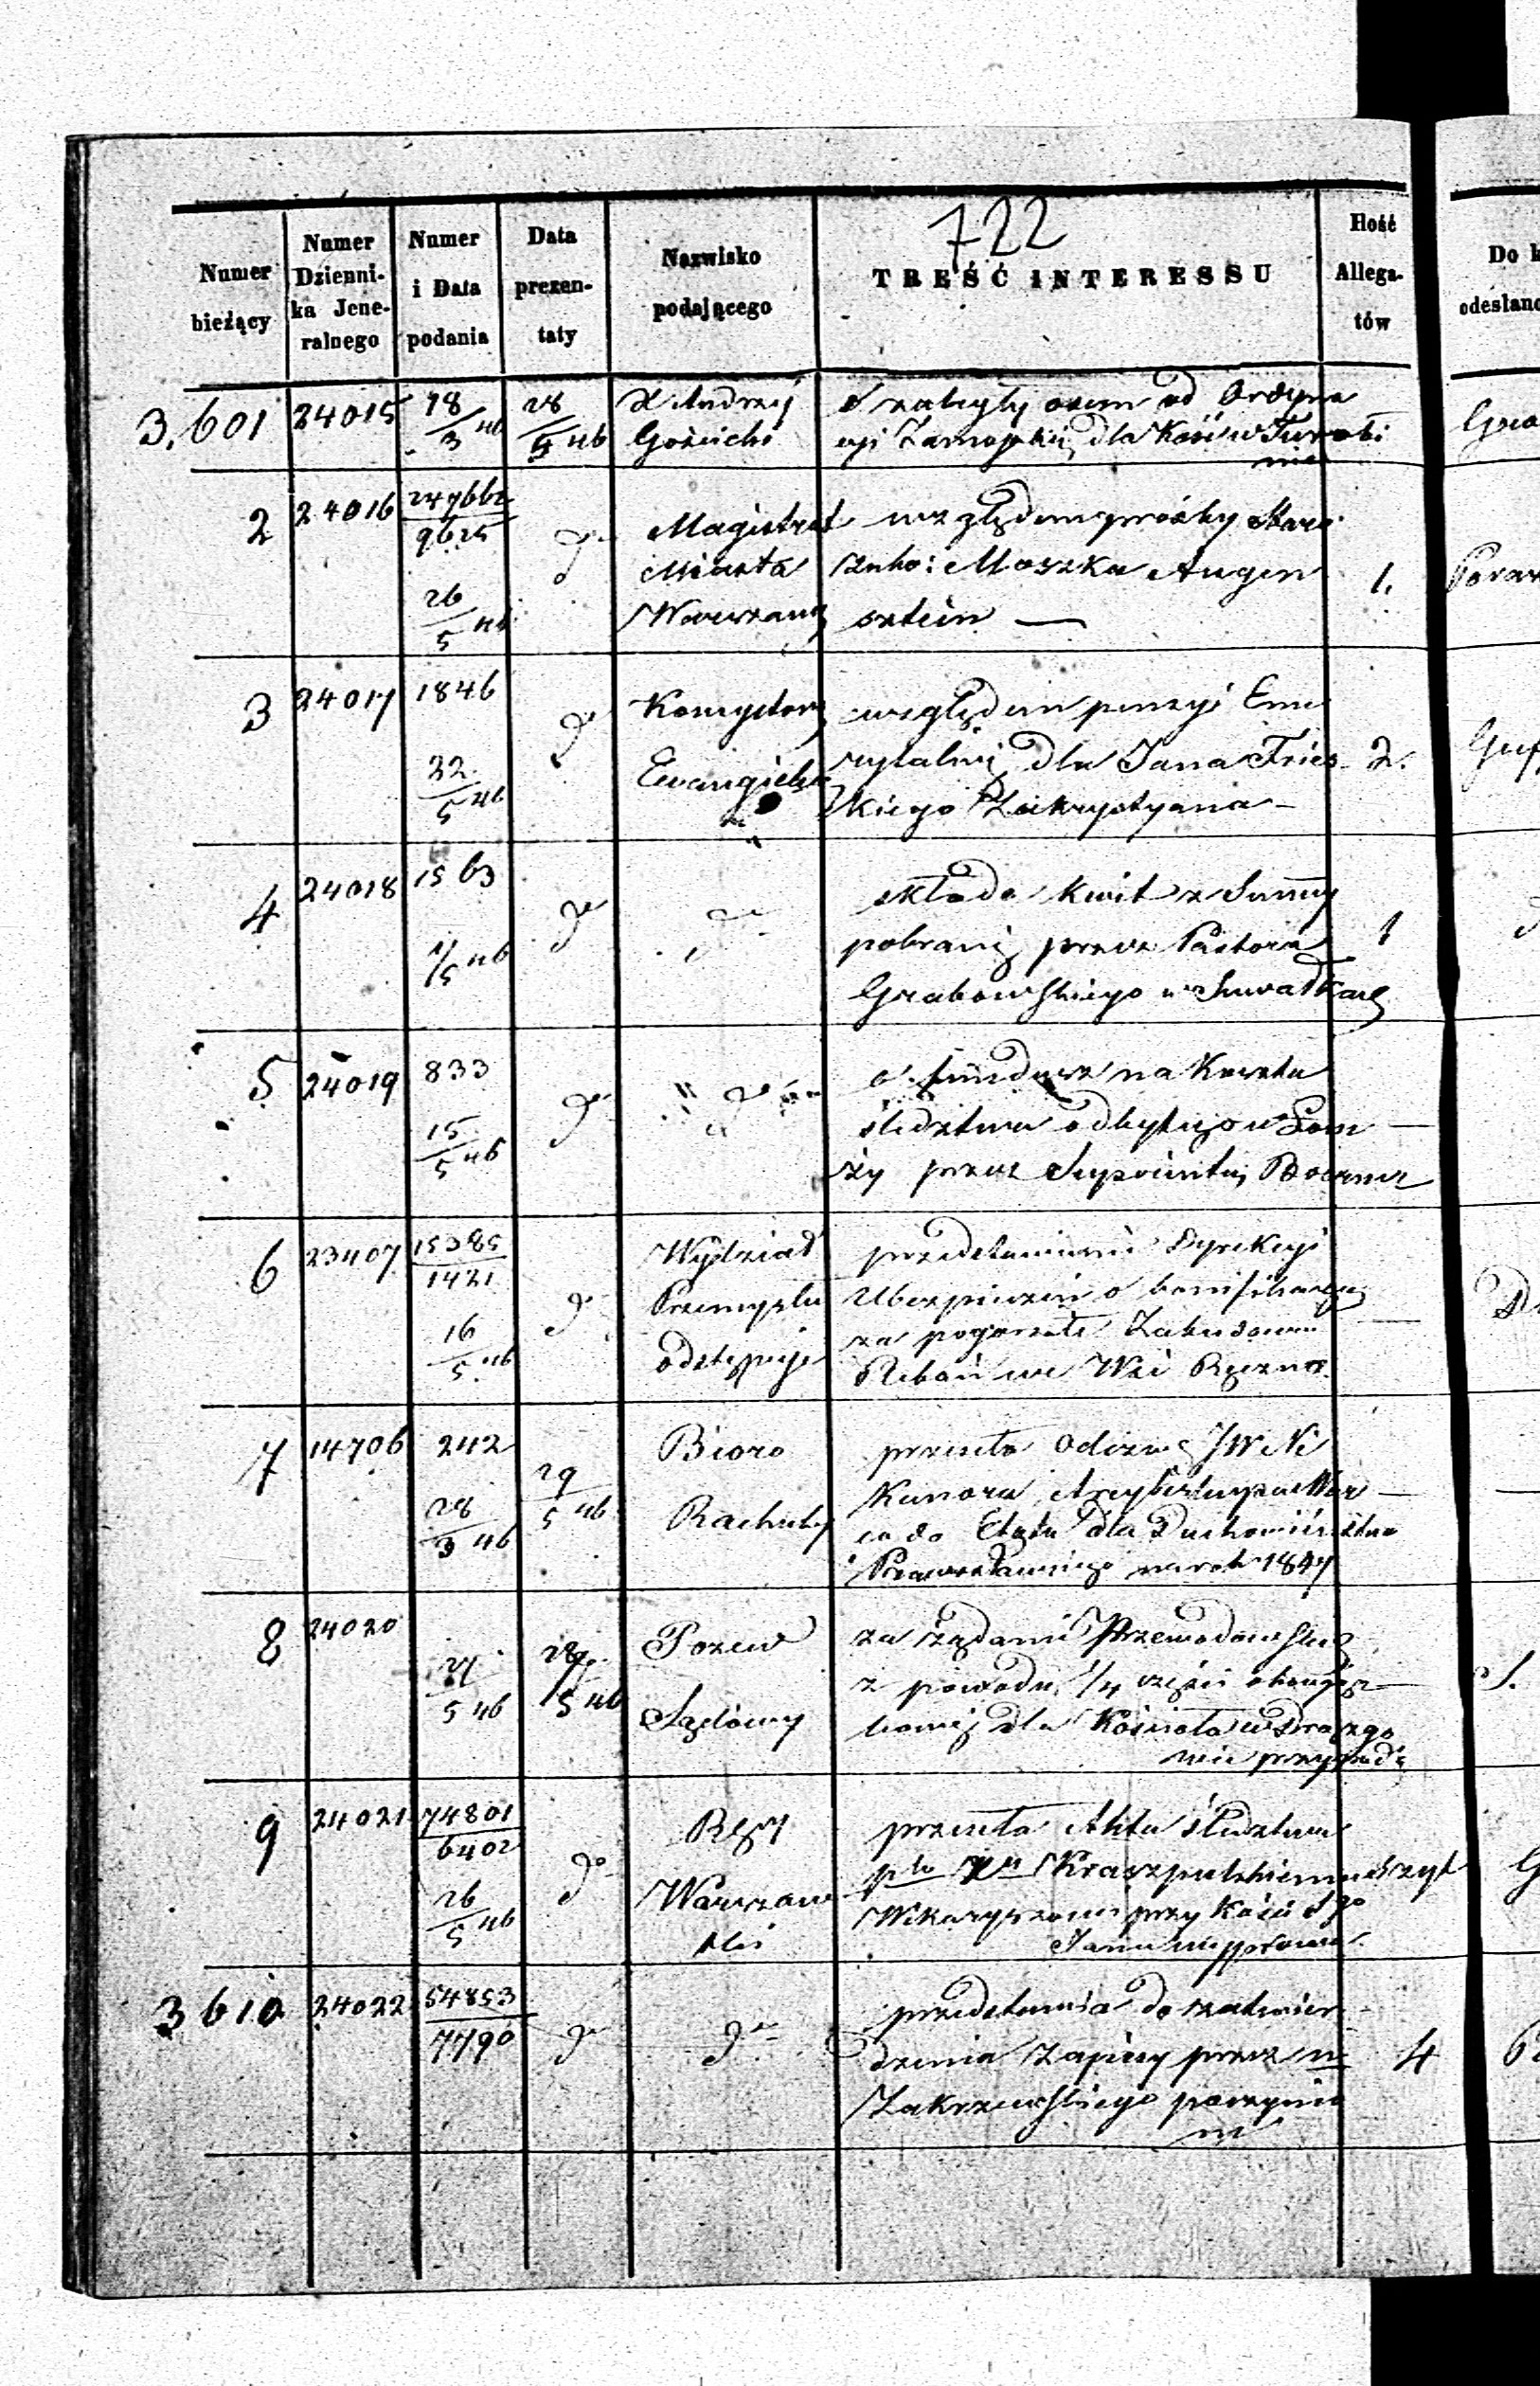 722
Numer bieżący
Numer Dziennika Jeneralnego
Numer i Data podania
Data prezentaty
Nazwisko podającego
TREŚĆ INTERESSU
Ilość Allegatów
Do k
odesłano
3.601 24015 18/3 46 28/5 46 X Andrzej Gościcki
od Ordyna
cyi Zamojskiej dla Kość: w Turobi
nie
2 24016 247662/9625 26/5 46 do Magistrat Miasta Warszawy
względem prośby Staro
zako: Moszka Augen
sztein — 1.
3 24017 1846 22/5 46 do Konsystorz Ewangielic
względem pensyi Eme
rytalnéj dla Jana Fries 2.
kiego Zakrystyana –
4 24018 1563 /5 46 do do
składa kwit z Summy
pobranéj przez Pastora 1
Grabowskiego w Suwałkach
5 24019 833 15/5 46 do do
o fundusz na Koszta
śledztwa odbytego w Łom —
ży przez
6 23407 15385/1421 16/5 46 do Wydział Przemysłu odstępuje
przedstawienie Dyrekcyi
Ubezpieczeń o bonifikacyą
za pogorzałe Zabudowania —
Pleban we Wsi Ręczno
7 14706 242 28/3 46 29/5 46 Bioro Rachuby
przesła Odezwę JW
Arcybiskupa War —
co do Etatu dla Duchowieństwa
Prawosławnego na rok 1847
8 24020 27/5 46 28/5 46 Pozew Sądowy
za żądanie Przewodowskiej
z powodu 1/4 części
dla Kościoła w Drazgo
wie przypad:
9 24021 74801/6402 26/5 46 do Rząd Warszaw ski
przesła Akta śledztwa
pko Xu
Wikaryuszowi przy Kość: Sgo
Jana
3610 24022 54853/7790 do do
przedstawia do zatwier
dzenia Zapisy przez 4
Zakrzewskiego poczynio
ne